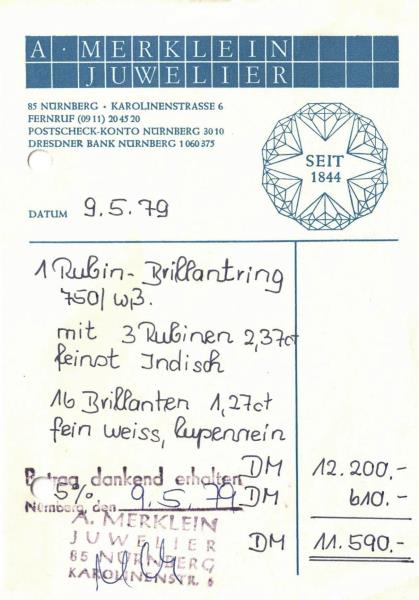 A · MERKLEIN
JUWELIER
85 NÜRNBERG · KAROLINENSTRASSE 6
FERNRUF (09 11) 20 45 20
POSTSCHECK-KONTO NÜRNBERG 30 10
DRESDNER BANK NÜRNBERG 1 060 375
SEIT
1844
DATUM 9.5.79
1 Rubin-Brillantring
750/ wß.
mit 3 Rubinen 2,37ct
feinst Indisch
16 Brillanten 1,27ct
fein weiss, lupenrein
DM 12.200,-
Betrag dankend erhalten
5% DM 610.-
Nürnberg, den 9.5.79
A. MERKLEIN
JUWELIER
DM 11.590.-
85 NÜRNBERG
KAROLINENSTR. 6